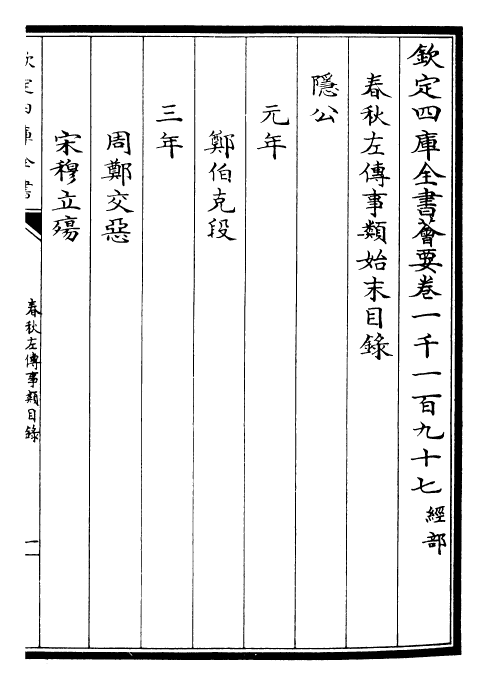 欽定四庫全書薈要卷一千一百九十七 經部
春秋左傳事類始末目錄
隱公
元年
鄭伯克段
三年
周鄭交惡
宋穆立殤
欽定四庫全書
春秋左傳事類目錄
一